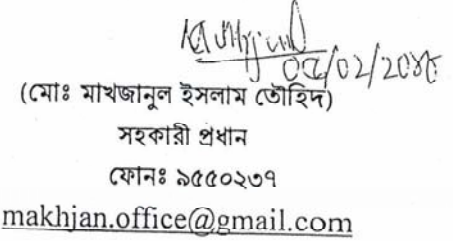 (মোঃ মাখজানুল ইসলাম তৌহিদ)
সহকারী প্রধান
ফোনঃ ৯৫৫০২৩৭
makhjan.office@gmail.com